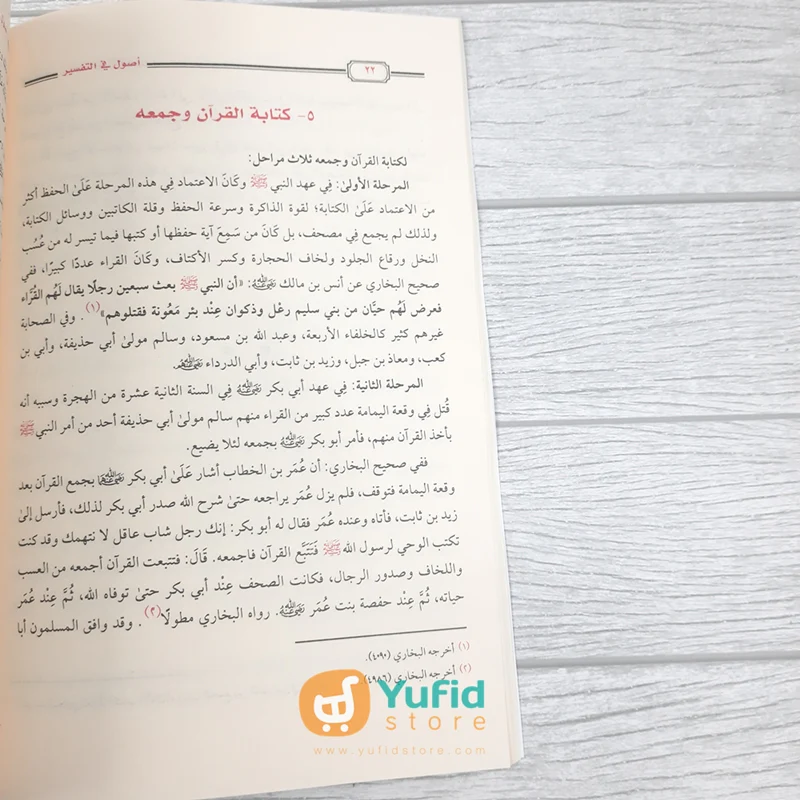 أصول في التفسير
٢٢
٥- كتابة القرآن وجمعه
لكتابة القرآن وجمعه ثلاث مراحل:
المرحلة الأولىٰ: فِي عهد النبي ﷺ وكَانَ الاعتماد فِي هذه المرحلة عَلَىٰ الحفظ أكثر
من الاعتماد عَلَىٰ الكتابة؛ لقوة الذاكرة وسرعة الحفظ وقلة الكاتبين ووسائل الكتابة،
ولذلك لم يجمع فِي مصحف، بل كَانَ من سَمِعَ آية حفظها أو كتبها فيما تيسر له من عُسُب
النخل ورقاع الجلود ولخاف الحجارة وكسر الأكتاف، وكَانَ القراء عددًا كبيرًا، ففي
صحيح البخاري عن أنس بن مالك رضي الله عنه: «أن النبي ﷺ بعث سبعين رجلًا يقال لَهُم القُرَّاء
فعرض لَهُم حيَّان من بني سليم رعْل وذكوان عِنْد بئر مَعُونة فقتلوهم»(١). وفي الصحابة
غيرهم كثير كالخلفاء الأربعة، وعبد الله بن مسعود، وسالم مولىٰ أبي حذيفة، وأبي بن
كعب، ومعاذ بن جبل، وزيد بن ثابت، وأبي الدرداء رضي الله عنهم.
المرحلة الثانية: فِي عهد أبي بكر رضي الله عنه فِي السنة الثانية عشرة من الهجرة وسببه أنه
قُتل فِي وقعة اليمامة عدد كبير من القراء منهم سالم مولىٰ أبي حذيفة أحد من أمر النبي ﷺ
بأخذ القرآن منهم، فأمر أبو بكر رضي الله عنه بجمعه لئلا يضيع.
ففي صحيح البخاري: أن عُمَر بن الخطاب أشار عَلَىٰ أبي بكر رضي الله عنهما بجمع القرآن بعد
وقعة اليمامة فتوقف، فلم يزل عُمَر يراجعه حتىٰ شرح الله صدر أبي بكر لذلك، فأرسل إلىٰ
زيد بن ثابت، فأتاه وعنده عُمَر فقال له أبو بكر: إنك رجل شاب عاقل لا نتهمك وقد كنت
تكتب الوحي لرسول الله ﷺ فَتَتَبَّع القرآن فاجمعه. قَالَ: فتتبعت القرآن أجمعه من العسب
واللخاف وصدور الرجال، فكانت الصحف عِنْد أبي بكر حتىٰ توفاه الله، ثُمَّ عِنْد عُمَر
حياته، ثُمَّ عِنْد حفصة بنت عُمَر رضي الله عنها. رواه البخاري مطولًا(٢). وقد وافق المسلمون أبا
(١) أخرجه البخاري (٤٠٩٠).
(٢) أخرجه البخاري (٤٩٨٦)
Yufid
store
www.yufidstore.com